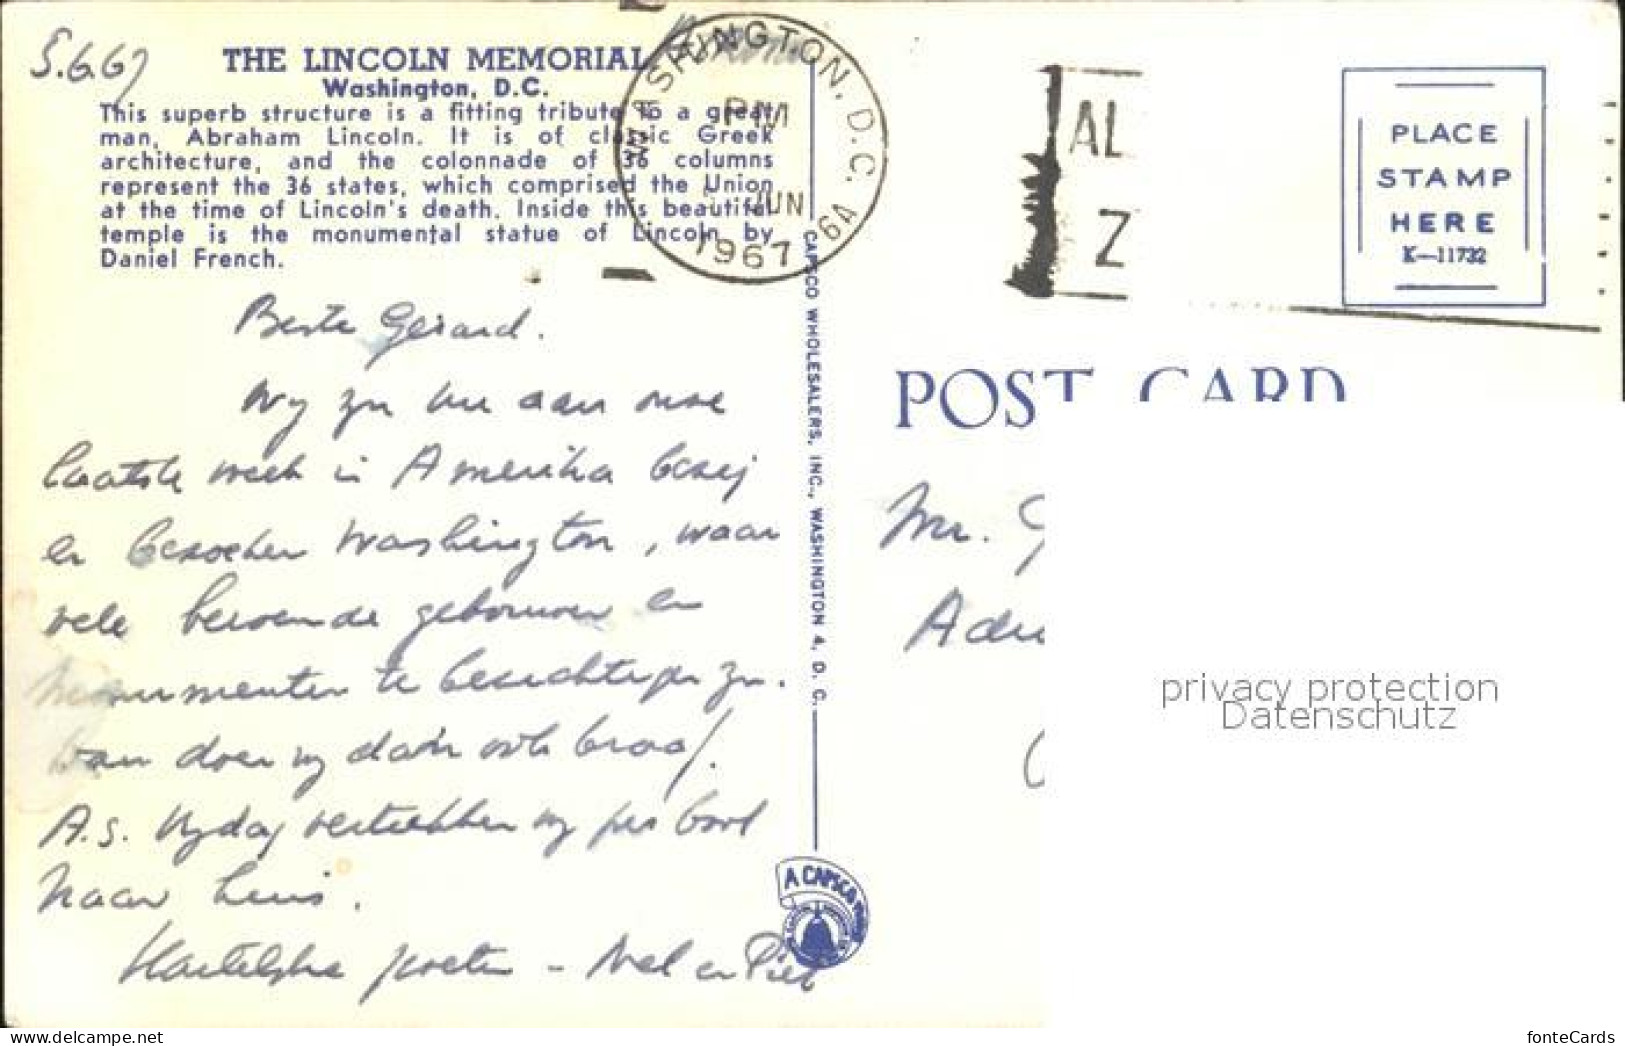 5.6.67
THE LINCOLN MEMORIAL
Washington, D.C.
This superb structure is a fitting tribute to a great
man, Abraham Lincoln. It is of classic Greek
architecture, and the colonnade of 36 columns
represent the 36 states, which comprised the Union
at the time of Lincoln's death. Inside this beautiful
temple is the monumental statue of Lincoln by
Daniel French.
WASHINGTON, D.C. 6A
PM
JUN
1967
AL
Z
PLACE
STAMP
HERE
K—11732
Beste Gerard.
Wy zyn nu aan onze
laatste week in Amerika bezig
en bezoeken Washington, waar
vele beroemde gebouwen en
monumenten te bezichtigen zyn.
Dan doen wy dan ook braaf.
A.s. vrydag vertrekken wy per boot
naar huis.
Hartelyke groeten – Nel en Piet
CAPSCO WHOLESALERS, INC., WASHINGTON 4, D. C.
A CAPSCO
POST CARD
Mr. G
Adri
privacy protection
Datenschutz
website: www.ansichtskarten-center.de
fonteCards